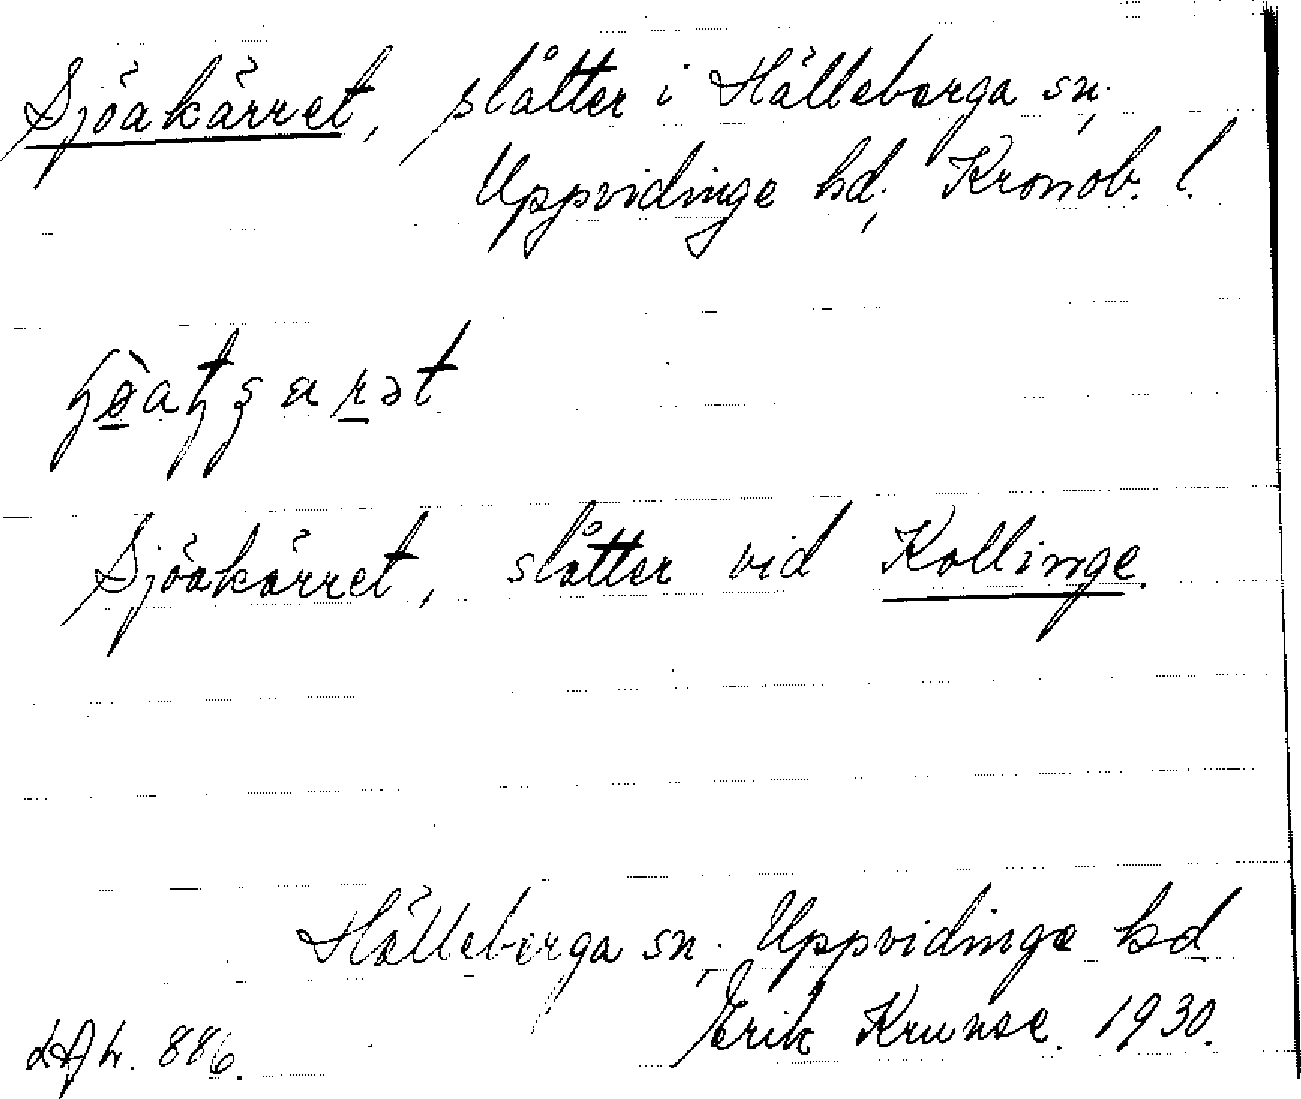 Sjöakärret, slåtter i Hälleberga sn,
Uppvidinge hd, Kronob. l.
Sjöakärret, slåtter vid Kollinge.
Hälleberga sn, Uppvidinge hd
Erik Krunse. 1930.
886.